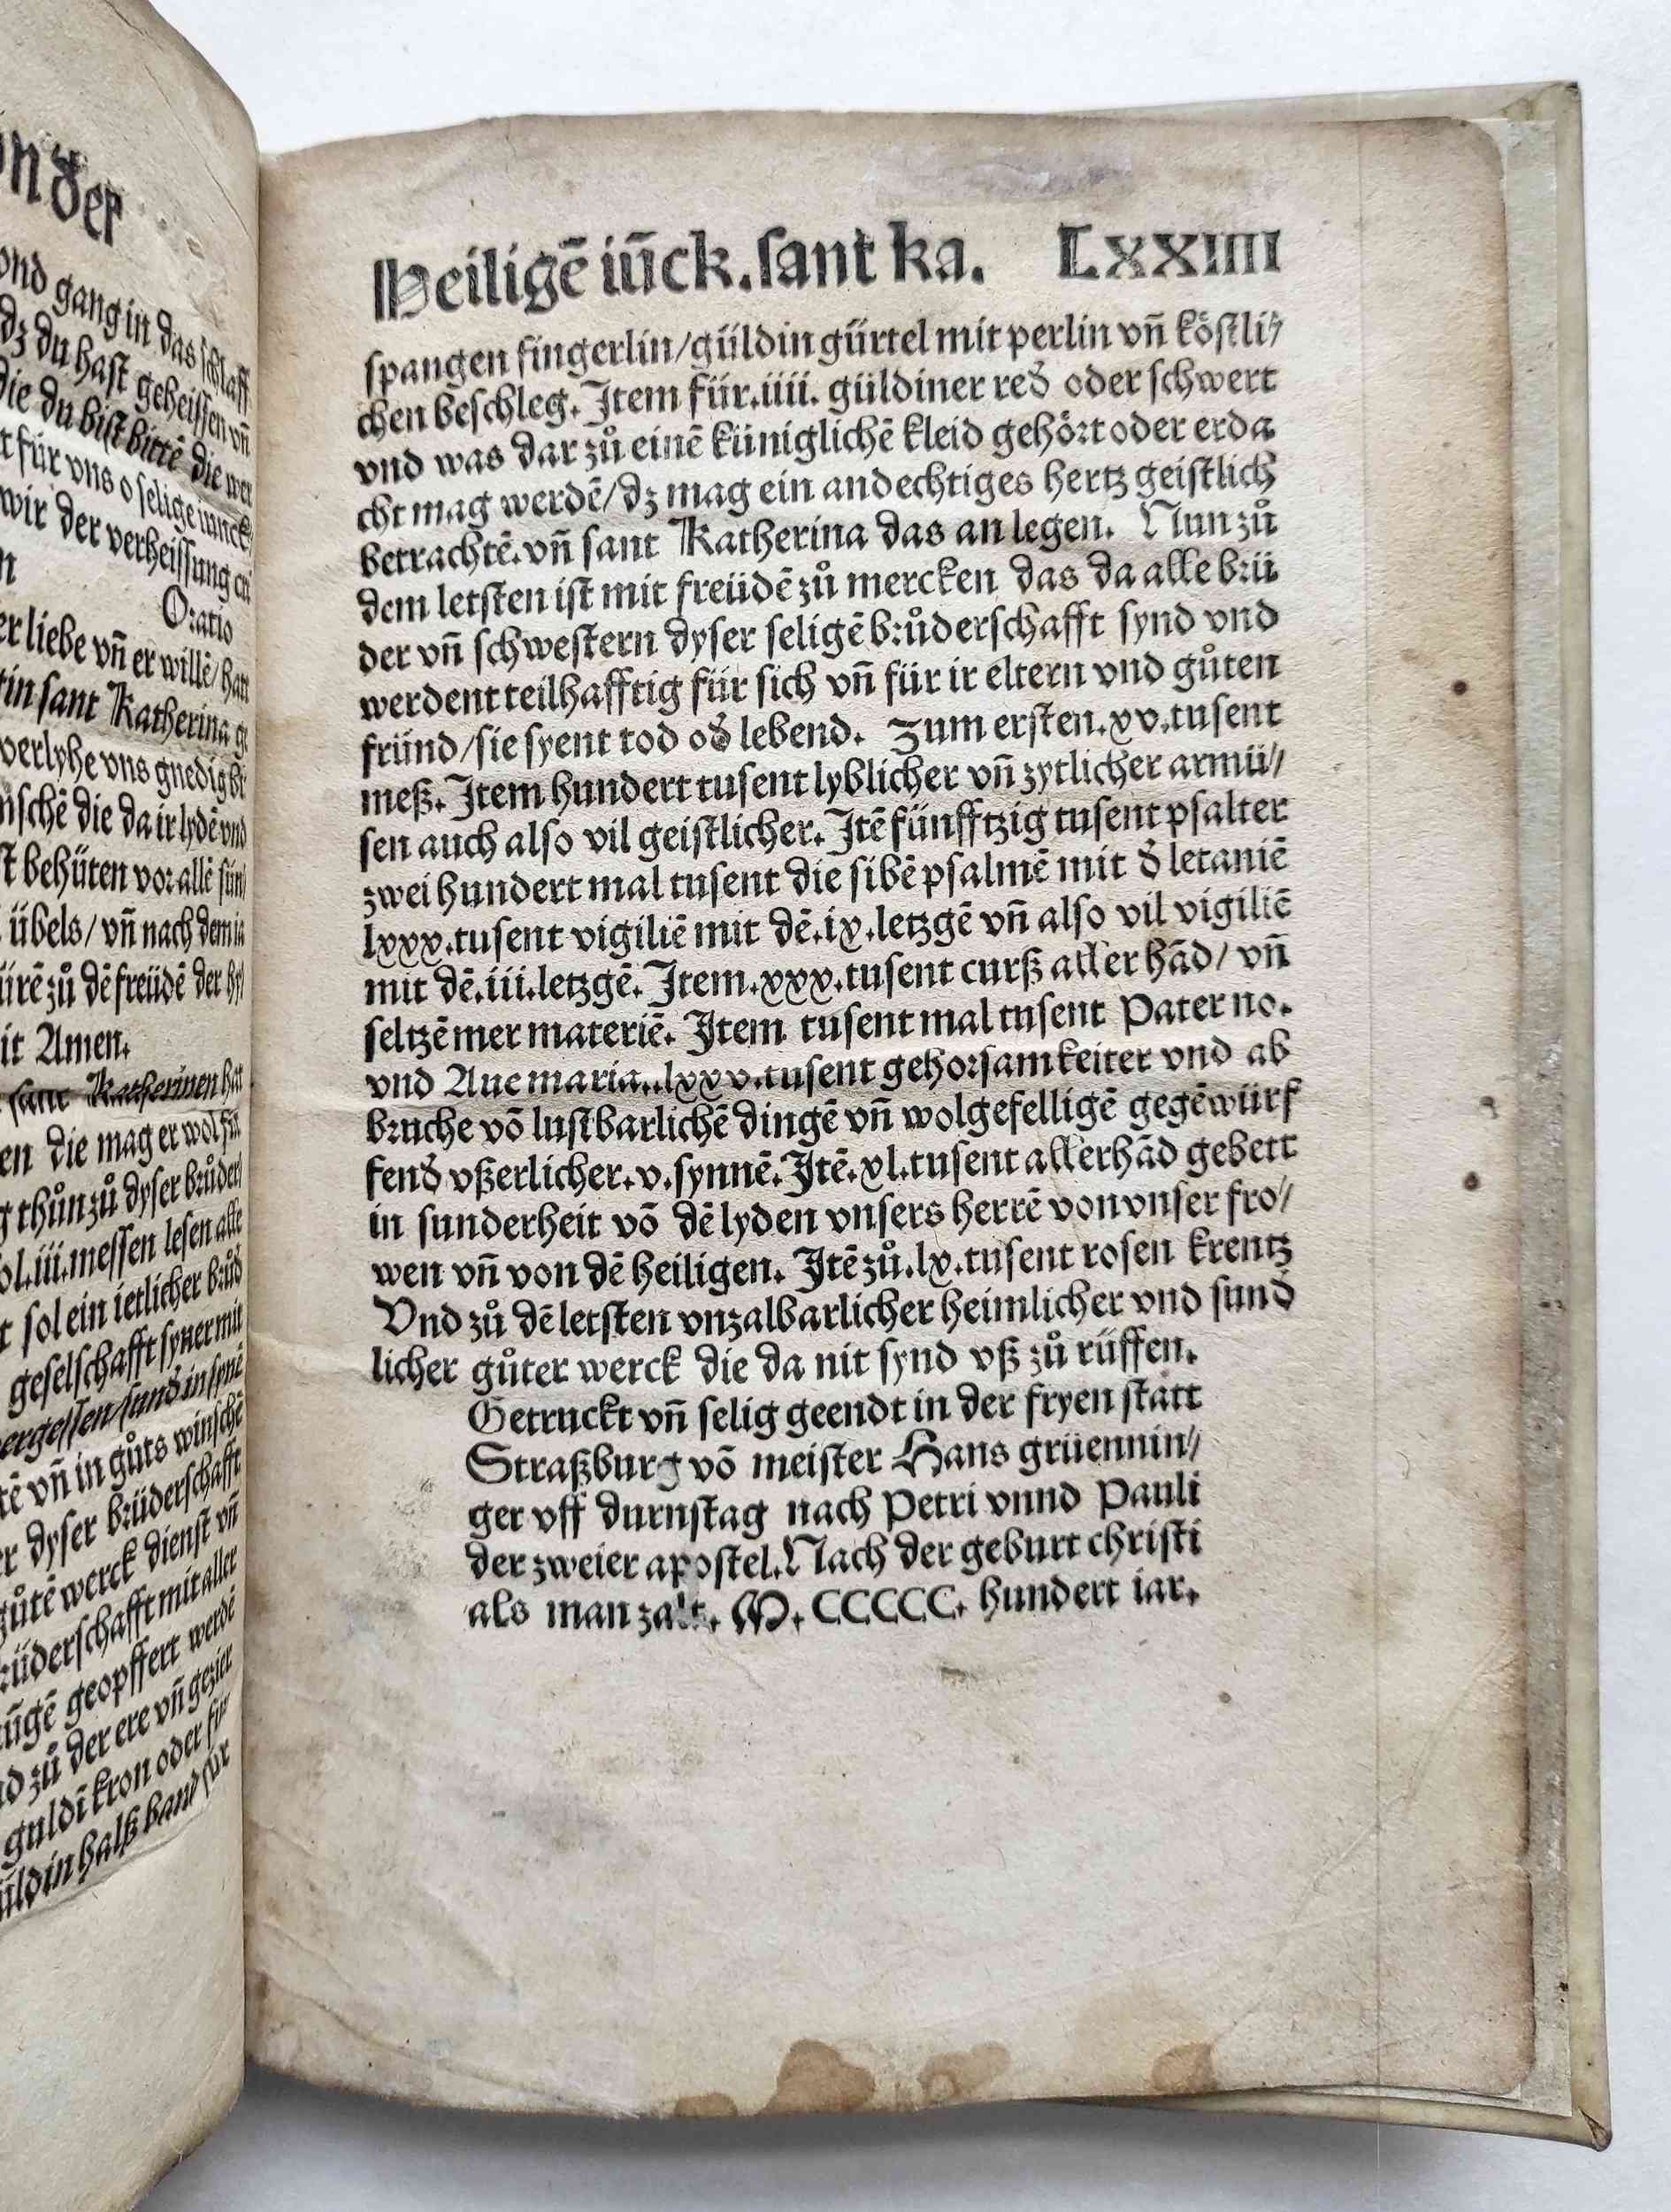 on der
vnd gang in das schlaff
dz du hast geheissen vñ
die du bist bittē die wer
t für vns o selige iunck
wir der verheissung en
n
Oratio
er liebe vñ er willē/ hatt
tin sant Katherina ge
verlyhe vns gnedig
nschē die da ir lydē vnd
st behüten vor allē sün/
übels/ vñ nach dem ia
ürē zů dē freüdē der hy/
it Amen.
sant Katherinen hat
en die mag er wol
g thůn zů dyser brůder
ol.iii.messen lesen alle
r sol ein ietlicher brůd
geselschafft syner mit
vergessen/sund in synē
tē vñ in gůts winschē
er dyser brüderschafft
gůtē werck dienst vñ
rüderschafft mit aller
ūgē geopffert werdē
nd zů der ere vñ gezier
guldī kron oder für
üldin halß band für
Heiligē iūck.sant ka. LXXIIII
spangen fingerlin/güldin gürtel mit perlin vñ köstli/
chen beschleg. Item für.iiii. güldiner red̄ oder schwert
vnd was dar zů einē küniglichē kleid gehört oder erda
cht mag werdē/dz mag ein andechtiges hertz geistlich
betrachtē.vñ sant Katherina das an legen. Nun zů
dem letsten ist mit freüdē zů mercken das da alle brü
der vñ schwestern dyser seligē brůderschafft synd vnd
werdent teilhafftig für sich vñ für ir eltern vnd gůten
fründ/sie syent tod od̄ lebend. Zum ersten.xv.tusent
meß. Item hundert tusent lyblicher vñ zytlicher armü//
sen auch also vil geistlicher. Itē fünfftzig tusent psalter
zwei hundert mal tusent die sibē psalmē mit d̄ letaniē
lxxx.tusent vigiliē mit dē.ix.letzgē vñ also vil vigiliē
mit dē.iii.letzgē. Item.xxx.tusent curß aller hād/ vñ
seltzēmer materiē. Item tusent mal tusent Pater no.
vnd Aue maria..lxxv.tusent gehorsamkeiter vnd ab
bruche vō lustbarlichē dingē vñ wolgefelligē gegēwürf
fend̄ vßerlicher.v.synnē. Itē.xl.tusent allerhād gebett
in sunderheit vō dē lyden vnsers herrē von vnser fro//
wen vñ von dē heiligen. Itē zů.lx.tusent rosen krentz
Vnd zů dē letsten vnzalbarlicher heimlicher vnd sund̄
licher gůter werck die da nit synd vß zů rüffen.
Getruckt vñ selig geendt in der fryen statt
Straßburg vō meister Hans grüennin//
ger vff durnstag nach Petri vnnd Pauli
der zweier apostel. Nach der geburt christi
als man zalt. M. CCCCC. hundert iar.